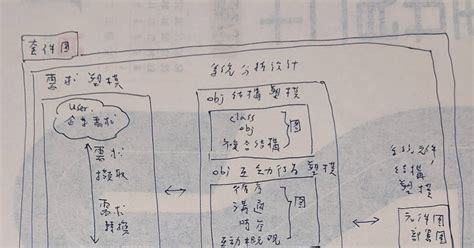 套件圖
需求塑模
系統分析設計
user
企業需求
需求
擷取
需求
轉換
obj 結構塑模
class
obj
複合結構
圖
obj 互動行為塑模
循序
溝通
時序
互動概觀
圖
系統元件
結構
塑模
元件圖
部署圖